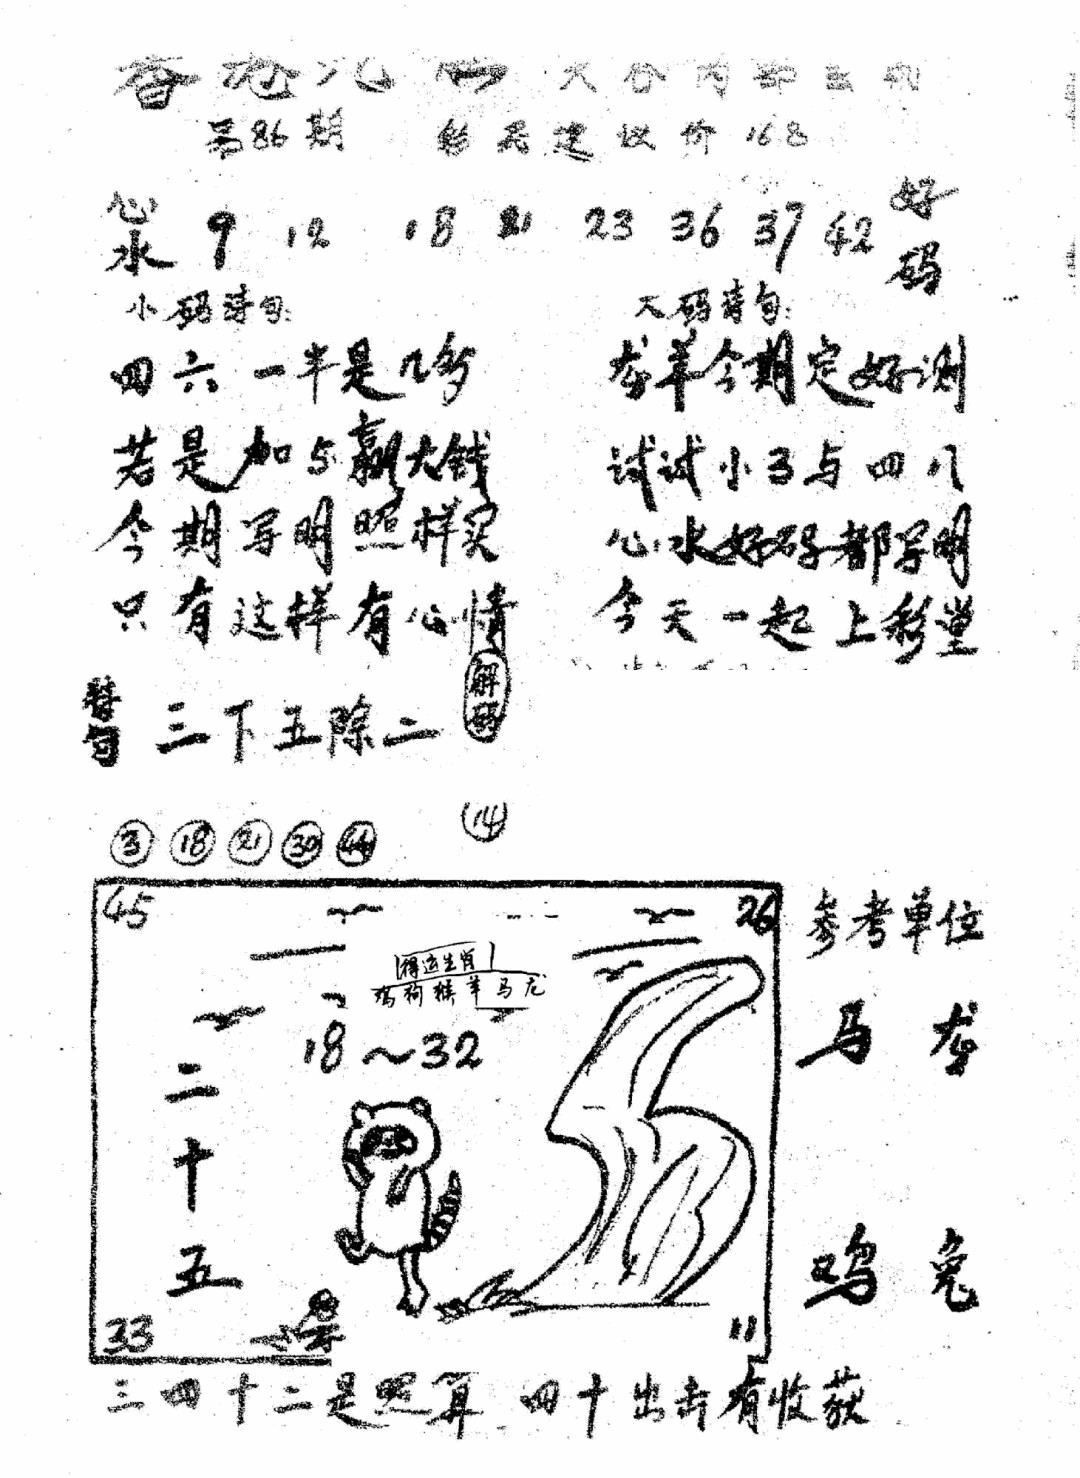 香港
第86期 彩民建议价168
心水 9 12 18 21 23 36 37 42 好码
小码诗句:
四六一半是几多
若是加5赢大钱
今期写明照样买
只有这样有心情
大码诗句:
龙羊今期定好测
试试小3与四八
心水好码都写明
今天一起上彩堂
三下五除二
解码
3 18 21 30 44
14
45
26
得运生肖
鸡狗猴羊马龙
18~32
二十五
33
11
参考单位
马 龙
鸡 兔
三四十二是照算 四十出击有收获